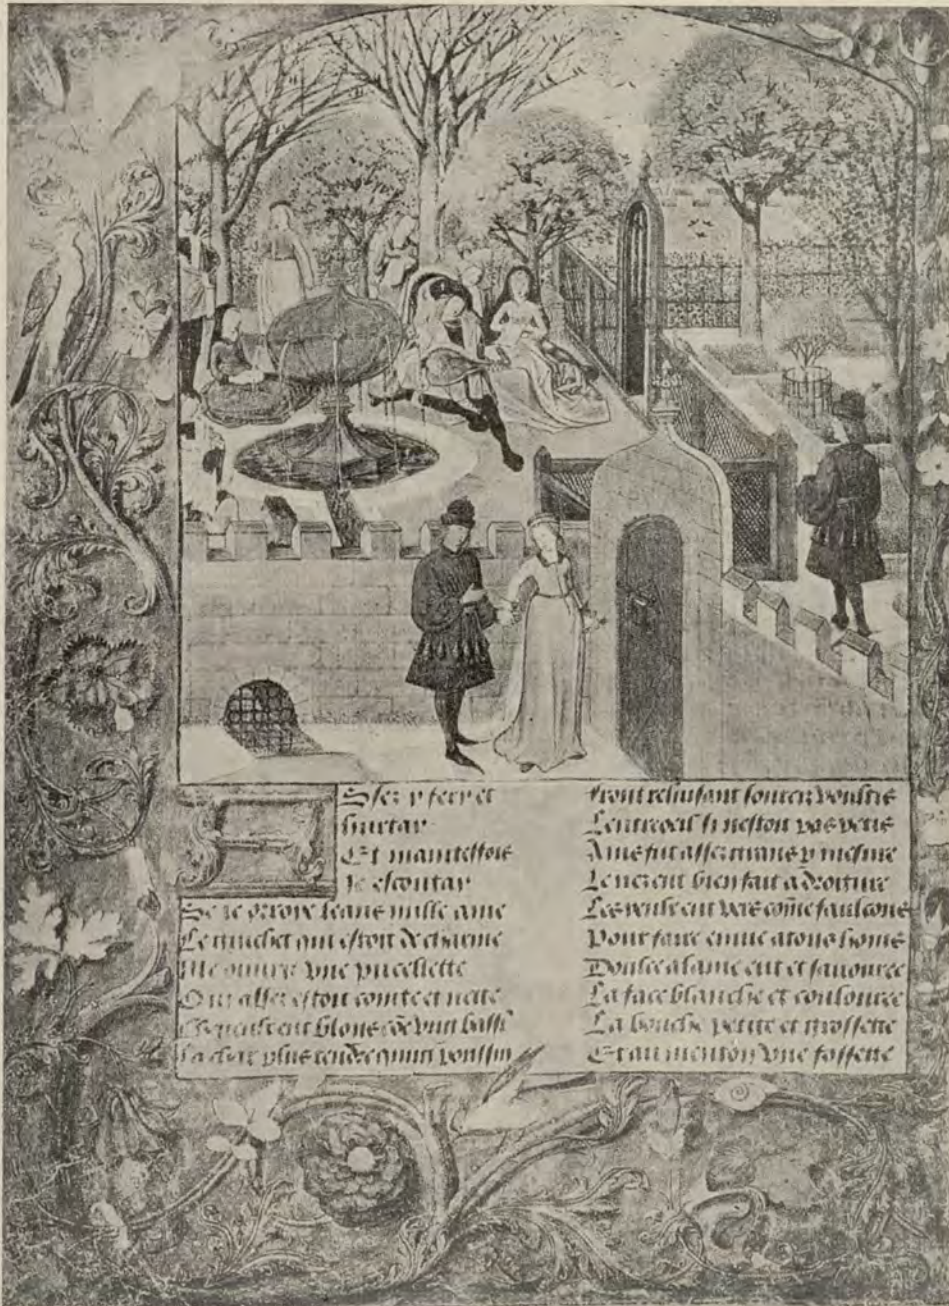 Assez y fery et
hurtay
Et maintesfois
Je escoutay
Se je orroye leans nulle ame
Le guichet qui estoit de charme
Me ouvrit vne pucellette
Qui assez estoit cointe et nette
Cheueulx eut blons cõe vng bassi
La char plus tendre qung poussin
Front reluisant sourcilz voultis
Lentreoeil si nestoit pas petis
Ains fut assez grans p mesure
Le nez eut bien fait a droiture
Les yeulx eut vers cõme faulcons
Pour faire enuie a tous homs
Doulce alaine eut et sauouree
La face blanche et coulouree
La bouche petite et grossette
Et au menton vne fossette